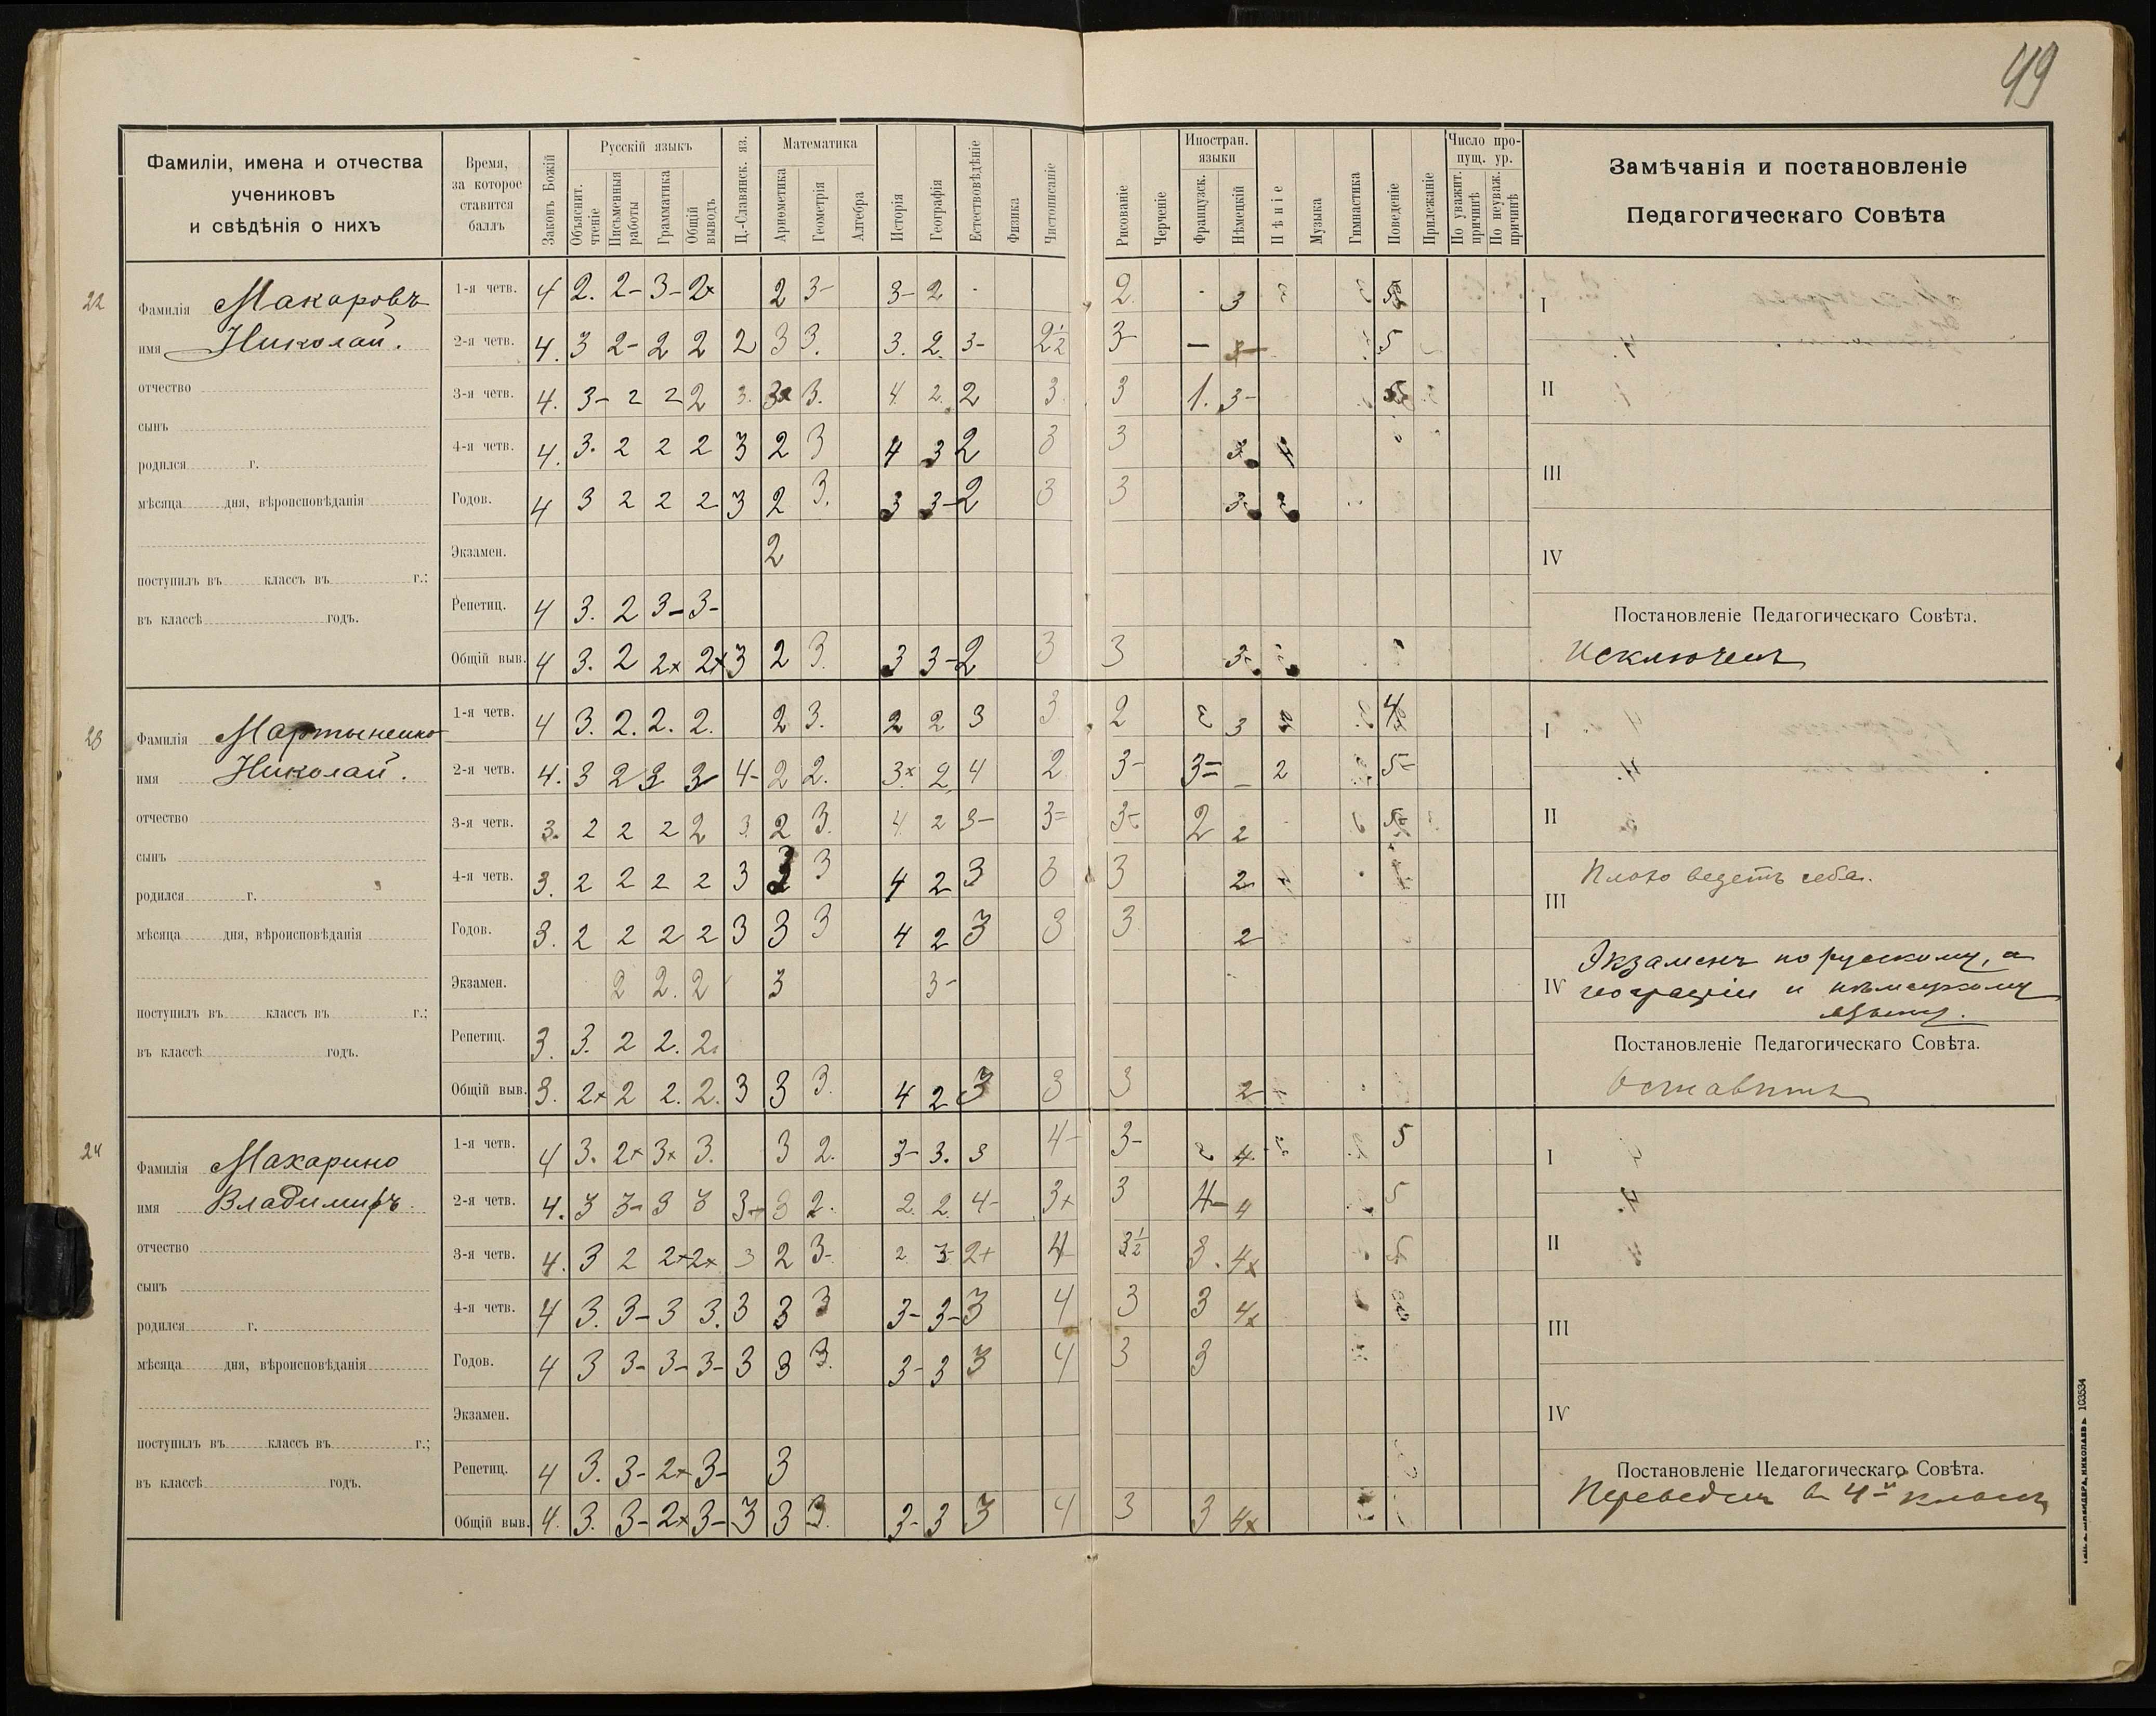 49
Фамиліи, имена и отчества
учениковъ
и свѣдѣнія о нихъ
Время,
за которое
ставится
баллъ
Законъ Божій
Русскій языкъ
Объяснит. чтеніе
Письменныя работы
Грамматика
Общій выводъ
Ц.-Славянск. яз.
Математика
Ариѳметика
Геометрія
Алгебра
Исторія
Географія
Естествовѣдѣніе
Физика
Чистописаніе
Рисованіе
Черченіе
Иностран. языки
Французск.
Нѣмецкій
Пѣніе
Музыка
Гимнастика
Поведеніе
Прилежаніе
Число пропущ. ур.
По уважит. причинѣ
По неуваж. причинѣ
Замѣчанія и постановленіе
Педагогическаго Совѣта
22
Фамилія Макаровъ
имя Николай.
отчество
сынъ
родился г.
мѣсяца дня, вѣроисповѣданія
поступилъ въ классъ въ г.;
въ классѣ годъ.
1-я четв. 4 2. 2- 3- 2+ 2 3- 3- 2 2 3
2-я четв. 4. 3 2- 2 2 2 3 3. 3. 2. 3- 2½ 3- — 5
3-я четв. 4. 3- 2 2- 2 3. 3. 4. 2. 2 3 3 1. 3-
4-я четв. 4. 3. 2 2 2 3 2 3 4 3 2 3 3
Годов. 4 3 2 2 2 3 2 3. 3 3- 2 3 3 3-
Экзамен. 2
Репетиц. 4 3. 2 3- 3-
Общій выв. 4 3. 2 2+ 2+ 3 2 3. 3 3- 2 3 3 3-
I
II
III
IV
Постановленіе Педагогическаго Совѣта.
Исключенъ
23
Фамилія Мартыненко
имя Николай.
отчество
сынъ
родился г.
мѣсяца дня, вѣроисповѣданія
поступилъ въ классъ въ г.;
въ классѣ годъ.
1-я четв. 4 3. 2. 2. 2. 2 3. 2 2 3 3 2 3 4
2-я четв. 4. 3 2 3 3 4- 2 2. 3+ 2. 4 2 3- 3= — 2 5-
3-я четв. 3. 2 2 2 2 3. 2 3. 4. 2 3- 3= 3- 2 2
4-я четв. 3. 2 2 2 2 3 3 3 4 2 3 3 3 2
Годов. 3. 2 2 2 2 3 3 3 4 2 3 3 3 2
Экзамен. 2 2. 2 3 3-
Репетиц. 3. 3. 2 2. 2.
Общій выв. 3. 2+ 2 2. 2. 3 3 3. 4 2 3 3 3 2
I
II
Плохо ведетъ себя.
III
Экзаменъ по русскому,
IV географіи и нѣмецкому
языку.
Постановленіе Педагогическаго Совѣта.
Оставить
24
Фамилія Махарино
имя Владимиръ.
отчество
сынъ
родился г.
мѣсяца дня, вѣроисповѣданія
поступилъ въ классъ въ г.;
въ классѣ годъ.
1-я четв. 4 3. 2+ 3+ 3. 3 2. 3- 3. 3 4- 3- 4 5
2-я четв. 4. 3 3- 3 3 3+ 3 2. 2. 2. 4- 3+ 3 4- 4 5
3-я четв. 4. 3 2 2+ 2+ 3 2 3- 2 3- 2+ 4 3½ 3. 4+ 5
4-я четв. 4 3. 3- 3 3. 3 3 3 3- 3- 3 4 3 3 4+
Годов. 4 3 3- 3- 3- 3 3 3. 3- 3 3 4 3 3
Экзамен.
Репетиц. 4 3. 3- 2+ 3- 3
Общій выв. 4. 3. 3- 2+ 3- 3 3 3. 3- 3 3 4 3 3 4+
I
II
III
IV
Постановленіе Педагогическаго Совѣта.
Переведенъ въ 4-й классъ
НИКОЛАЕВЪ. 103534